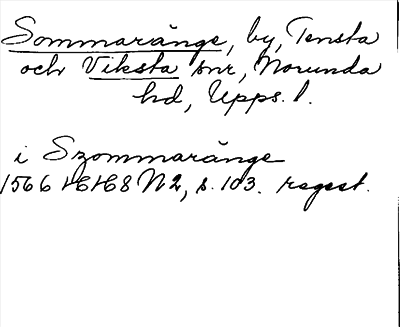 Sommaränge, by, Tensta
och Viksta snr, Norunda
hd, Upps. l.
i Szommaränge
1566 HH 8 N2, s. 103. regest.